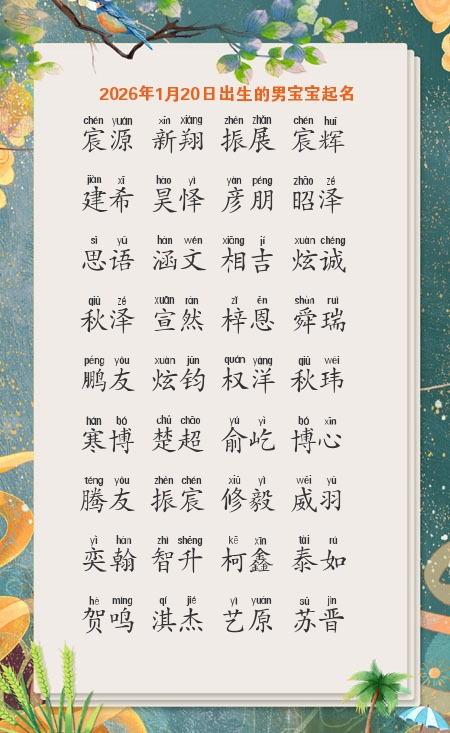 2026年1月20日出生的男宝宝起名
chén yuán xīn xiáng zhèn zhǎn chén huī
宸源 新翔 振展 宸辉
jiàn xī hào yì yàn péng zhāo zé
建希 昊怿 彦朋 昭泽
sī yǔ hán wén xiāng jí xuàn chéng
思语 涵文 相吉 炫诚
qiū zé xuān rán zǐ ēn shùn ruì
秋泽 宣然 梓恩 舜瑞
péng yǒu xuàn jūn quán yáng qiū wěi
鹏友 炫钧 权洋 秋玮
hán bó chǔ chāo yú yì bó xīn
寒博 楚超 俞屹 博心
téng yǒu zhèn chén xiū yì wēi yǔ
腾友 振宸 修毅 威羽
yì hàn zhì shēng kē xīn tài rú
奕翰 智升 柯鑫 泰如
hè míng qí jié yì yuán sū jìn
贺鸣 淇杰 艺原 苏晋